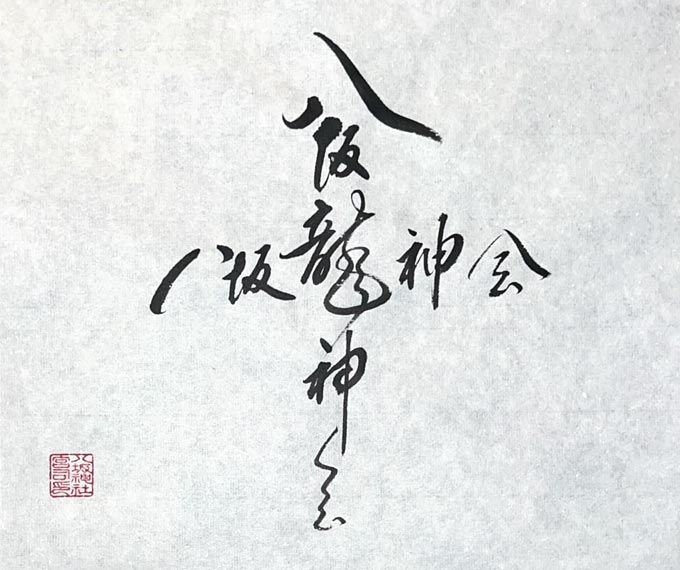 八坂龍神会
八坂龍神会